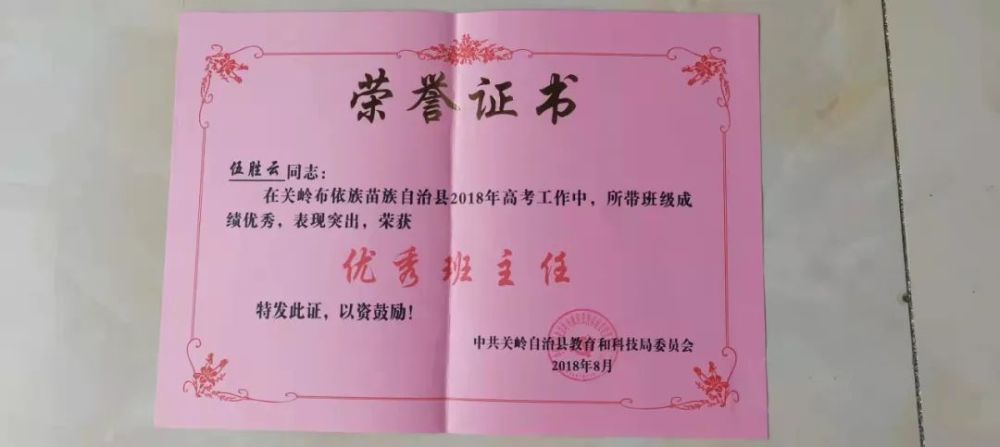 荣誉证书
伍胜云同志：
在关岭布依族苗族自治县2018年高考工作中，所带班级成
绩优秀，表现突出，荣获
优秀班主任
特发此证，以资鼓励！
中共关岭自治县教育和科技局委员会
2018年8月